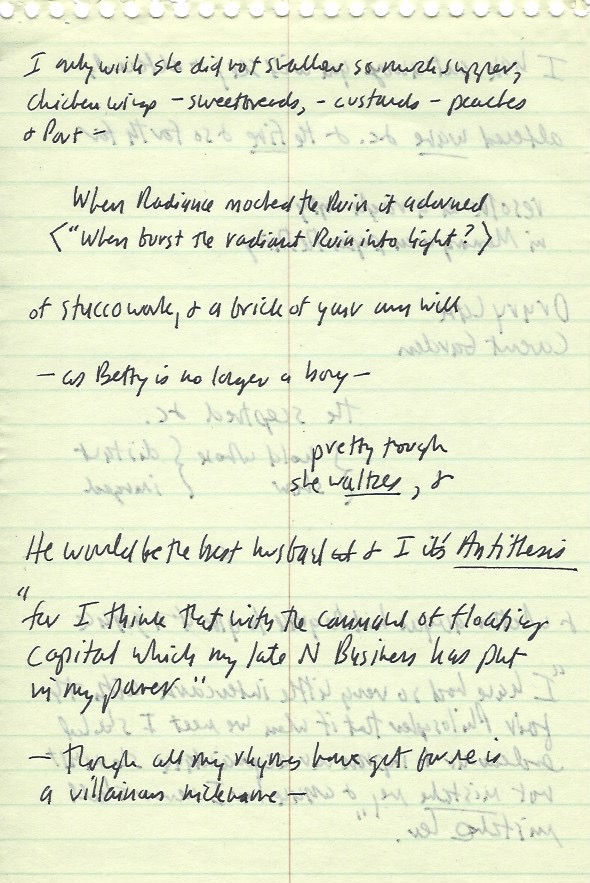 I only wish she did not swallow so much supper,
chicken wings – sweetbreads, – custards – peaches
& Port –
When Radiance mocked the Ruin it adorned
("When burst the radiant Ruin into light?")
of stuccowork, & a brick of your own will
– as Betty is no longer a boy –
pretty tough
she waltzes, &
He would be the best husband out & I it's Antithesis
"for I think that with the command of floating
capital which my late N Business has put
in my power"
– though all my rhymes have got for me is
a villainous nickname –